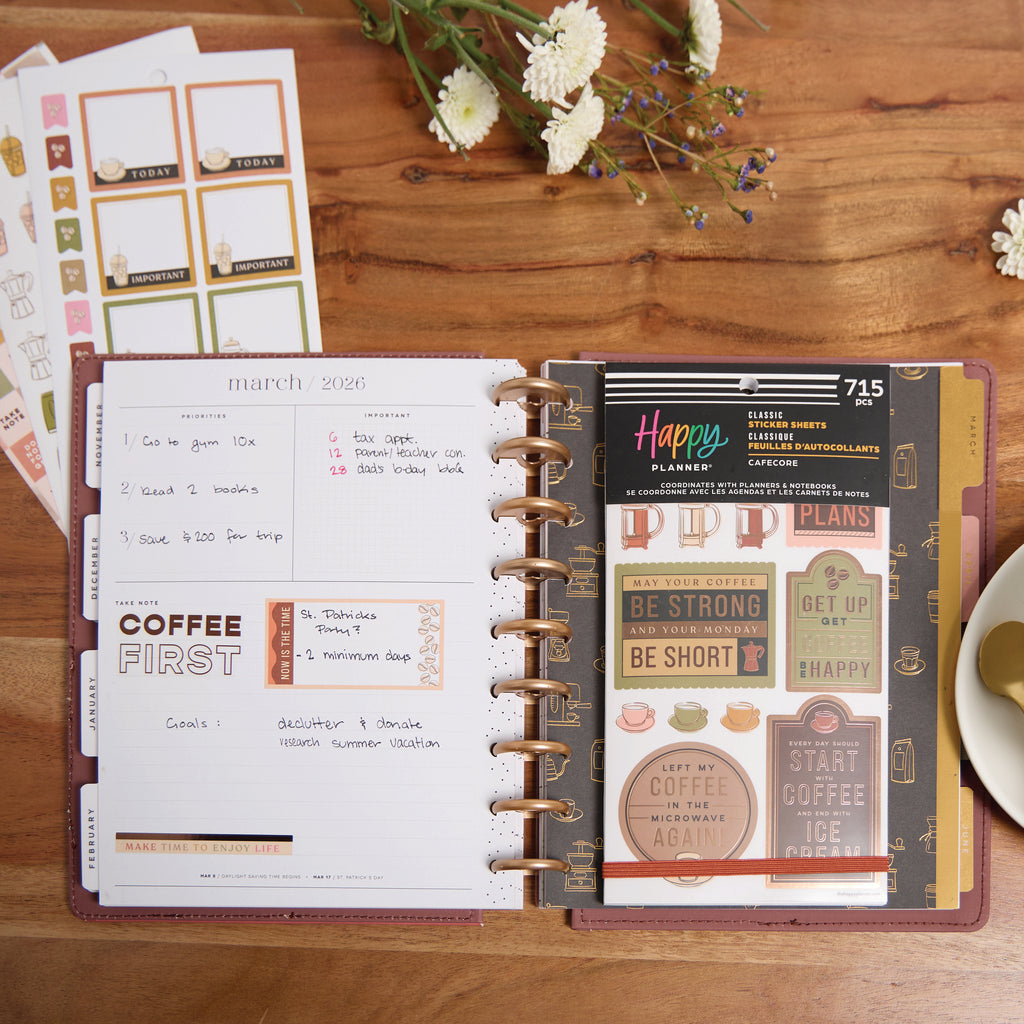 TODAY
TODAY
IMPORTANT
IMPORTANT
TAKE
NOTE
NOVEMBER
DECEMBER
JANUARY
FEBRUARY
march / 2026
PRIORITIES
1/ Go to gym 10x
2/ Read 2 books
3/ Save $200 for trip
IMPORTANT
6 tax appt.
12 parent/teacher con.
28 dad's b-day
TAKE NOTE
COFFEE
FIRST
NOW IS THE TIME
St. Patricks
Party?
- 2 minimum days
Goals: declutter & donate
research summer vacation
MAKE TIME TO ENJOY LIFE
MAR 8 / DAYLIGHT SAVING TIME BEGINS • MAR 17 / ST. PATRICK'S DAY
715
pcs
Happy
PLANNER®
CLASSIC
STICKER SHEETS
CLASSIQUE
FEUILLES D'AUTOCOLLANTS
CAFECORE
COORDINATES WITH PLANNERS & NOTEBOOKS
SE COORDONNE AVEC LES AGENDAS ET LES CARNETS DE NOTES
PLANS
MAY YOUR COFFEE
BE STRONG
AND YOUR MONDAY
BE SHORT
GET UP
GET
COFFEE
BE HAPPY
LEFT MY
COFFEE
IN THE
MICROWAVE
AGAIN!
EVERY DAY SHOULD
START
WITH
COFFEE
AND END WITH
ICE
CREAM
thehappyplanner.com
MARCH
JUNE